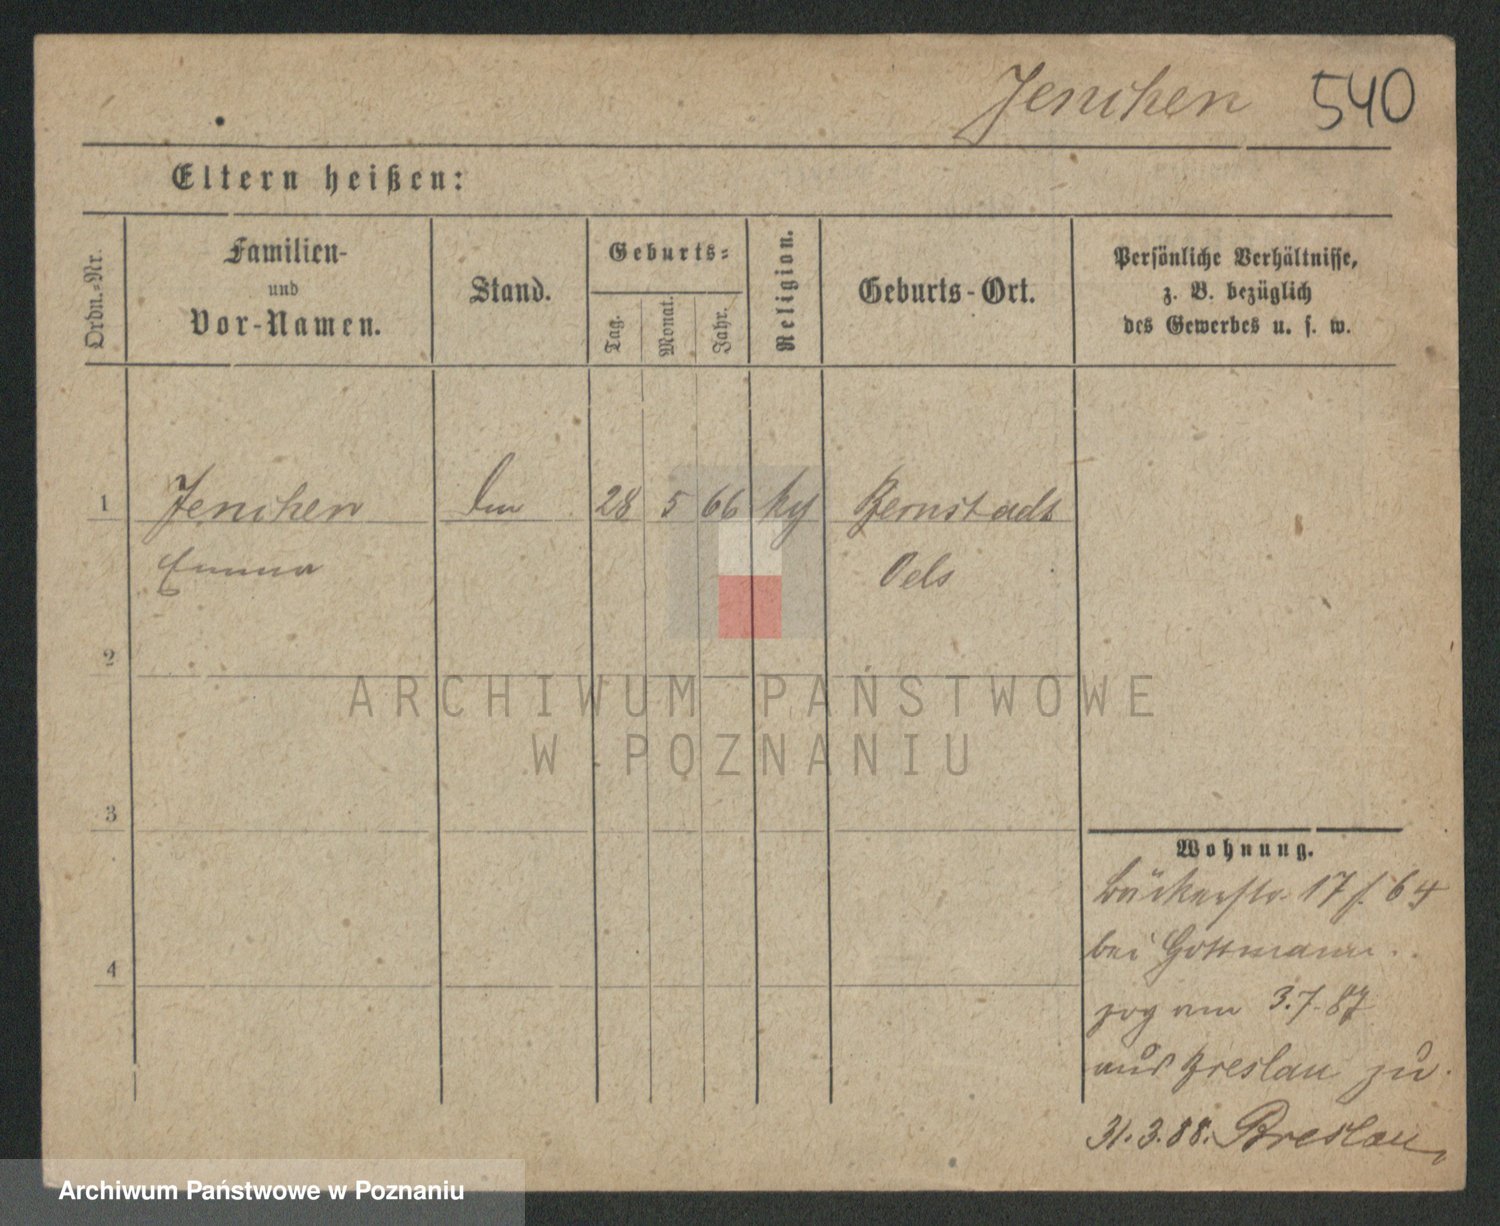 Jenchen 540
Eltern heißen:
Ordn.-Nr.
Familien-
und
Vor-Namen.
Stand.
Geburts-
Tag.
Monat.
Jahr.
Religion.
Geburts-Ort.
Persönliche Verhältnisse,
z. B. bezüglich
des Gewerbes u. s. w.
1 Jenchen 28 5 66 Bernstadt
Emma Oels
2
ARCHIWUM PAŃSTWOWE
W POZNANIU
3
Wohnung.
Bäckerstr. 17 64
bei Gottmann.
4
zog am 3.7.87
aus Breslau zu.
31.3.88. Breslau
Archiwum Państwowe w Poznaniu